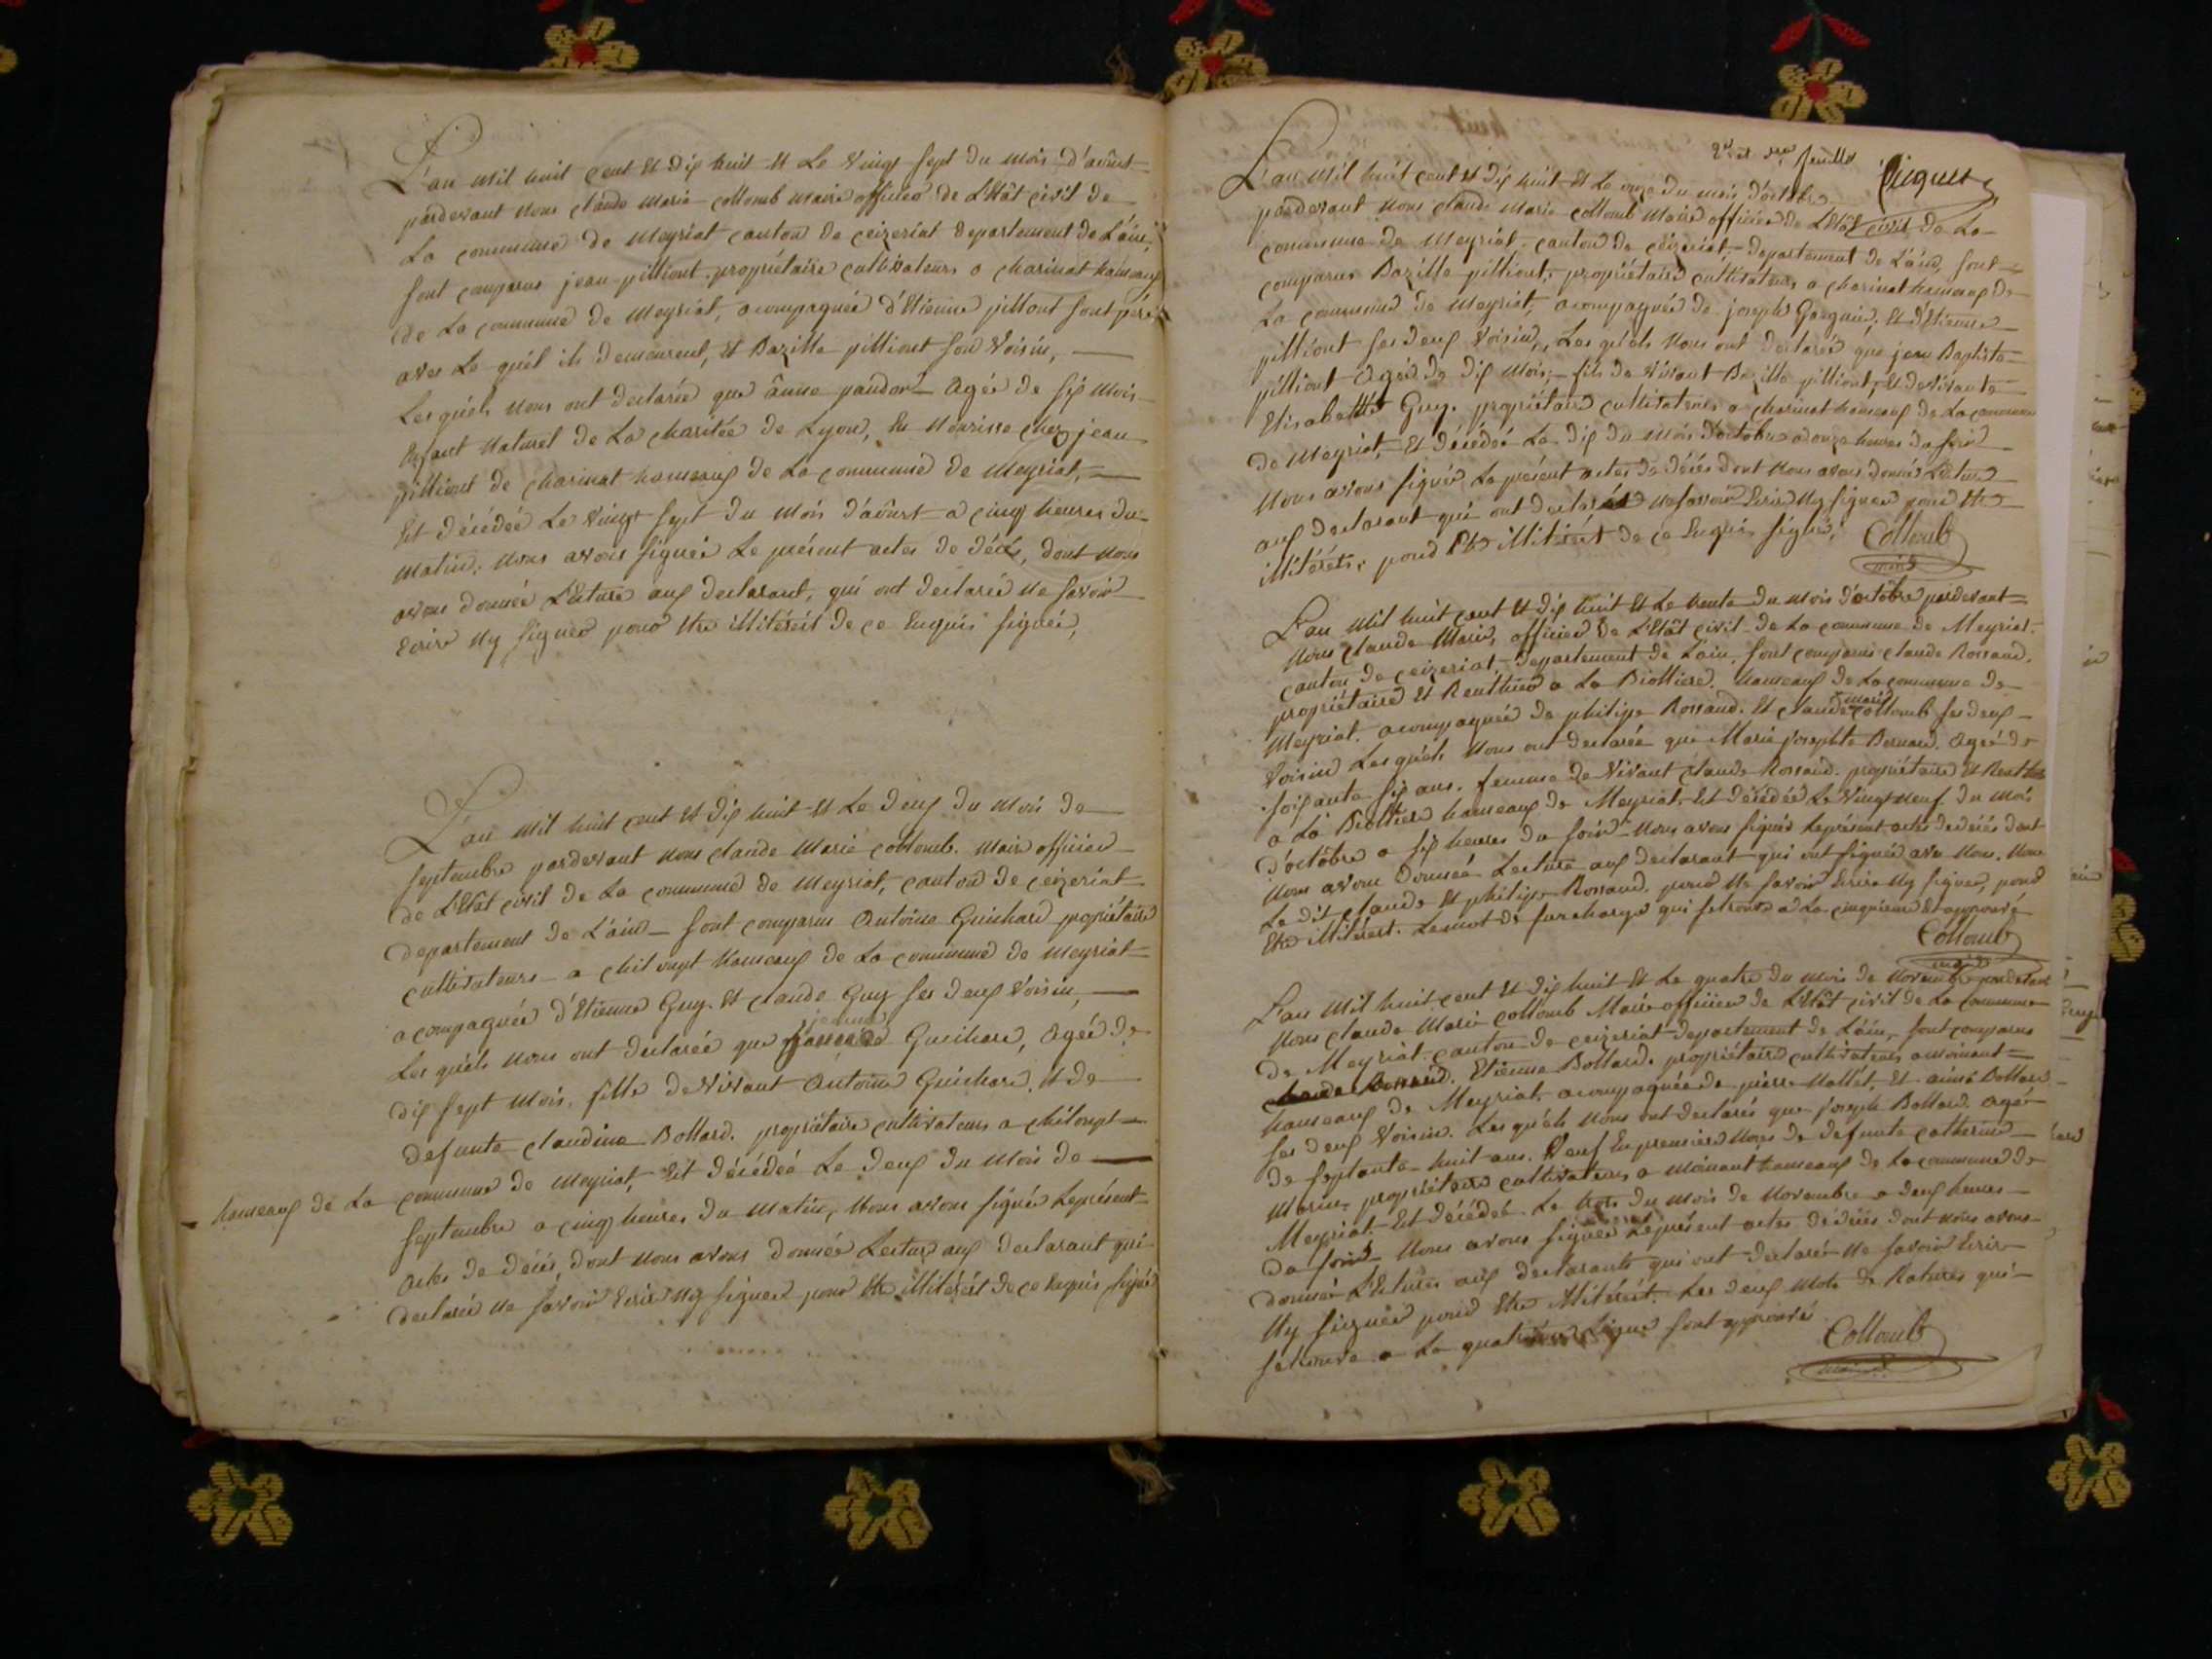 L'an mil huit cent et dix huit et le vingt sept du mois d'aôust
pardevant nous claude marie collomb maire officier de l'êtât civil de
la commune de meyriat canton de ceizeriat departement de l'ain,
sont comparus jean pilliont propriétaire cultivateurs a charinat hameaux
de la commune de meyriat, acompagnée d'Etienne pilliont son père
avec le quél ils demeurent, et Bazille pilliont son voisin,
lesquéls nous ont declarée que ânne pandor agée de six mois
enfant naturel de la charitée de Lyon, en nourisse chez jean
pilliont de charinat hameaux de la commune de meyriat,
Est décédée le vingt sept du mois d'aôust a cinq heures du
matin, nous avons signée le présent actes de décés, dont nous
avons donnée l'ecture aux declarant, qui ont declarée ne savoir
ecrire ny signer pour etre illitéréit de ce enquis signée,
L'an mil huit cent et dix huit et le deux du mois de
septembre pardevant nous claude marie collomb. maire officier
de l'êtât civil de la commune de meyriat, canton de ceizeriat
departement de l'ain sont comparus Antoine Guichard propriétaire
cultivateurs a chiloupt hameaux de la commune de meyriat
acompagnée d'Etienne Guy. et claude Guy ses deux voisin,
lesquéls nous ont declarée que Guichard, agée de
dix sept mois, fille de vivant Antoine Guichard. et de
defunte claudine Bollard. propriétaire cultivateurs a chiloupt
hameaux de la commune de meyriat, est décédée le deux du mois de
septembre a cinq heures du matin, nous avons signée le présent
actes de décés, dont nous avons donnée lecture aux declarant qui
declarée ne savoir ecrire ny signer pour etre illitéréit de ce enquis signée
feuillet
L'an mil huit cent et dix huit et le onze du mois d'octobre
pardevant nous claude marie collomb maire officier de l'êtât civil de la
commune de meyriat canton de ceizeriat, departement de l'ain, sont
comparus Bazille pilliont, propriétaire cultivateurs a charinat hameaux de
la commune de meyriat, acompagnée de joseph Goyguin, et d'Etienne
pilliont ses deux voisin, lesquéls nous ont declarée que jean Baptiste
pilliont agée de dix mois, fils de vivant Bazille pilliont, et de vivante
Elisabette Guy. propriétaire cultivateurs a charinat hameaux de la commune
de meyriat, est décédée le dix du mois d'octobre a onze heures du soir
nous avons signée le présent actes de décés dont nous avons donnée l'ecture
aux declarant qui ont declarée ne savoir ecrire ny signer pour etre
illitéréts, pour etre illitérét de ce enquis signée, Collomb
maire
L'an mil huit cent et dix huit et le trente du mois d'octôbre pardevant
nous claude Marie, officier de l'êtât civil de la commune de Meyriat.
canton de ceizeriat, departement de l'ain, sont comparus claude Rossand.
propriétaire et Renthier a la Biolliere. hameaux de la commune de
meyriat. acompagnée de philipe Rossand. et claude marie collomb ses deux
voisin lesquéls nous ont declarée que Marie josephte Bernard. agée de
soixante six ans. femme de vivant claude Rossand. propriétaire et Renthier
a la Biolliere hameaux de Meyriat, est décédée le vingt neuf du mois
d'octôbre a six heures du soir nous avons signée le présent actes de décés dont
nous avons donnée lecture aux declarant qui ont signée avec nous. non
le dit claude et philipe Rossand. pour ne savoir ecrire ny signer, pour
etre illitérét. le mot de surcharge qui se trouve a la cinquieme est approuvé
Collomb
maire
L'an mil huit cent et dix huit et le quatre du mois de novembre pardevant
nous claude Marie collomb Maire officier de l'êtât civil de la commune
de Meyriat canton de ceizeriat departement de l'ain, sont comparus
claude Rossand. Etienne Bollard. propriétaire cultivateurs a moinant
hameaux de Meyriat, acompagnée de pierre Mallet, et aimé Bollard
ses deux voisin. lesquéls nous ont declarée que joseph Bollard. agée
de septante huit ans. veuf en premiere nous de defunte catherine
Morin. propriétaire cultivateurs a moinant hameaux de la commune de
Meyriat. est décédée le trois du mois de novembre a deux heures
du soir nous avons signée le présent actes de décés dont nous avons
donnée l'ecture aux declarants qui ont declarée ne savoir ecrire
ny signée pour etre illitérét. les deux mots de Ratures qui
se trouve a la quatrieme Ligne sont approuvés
Collomb
maire